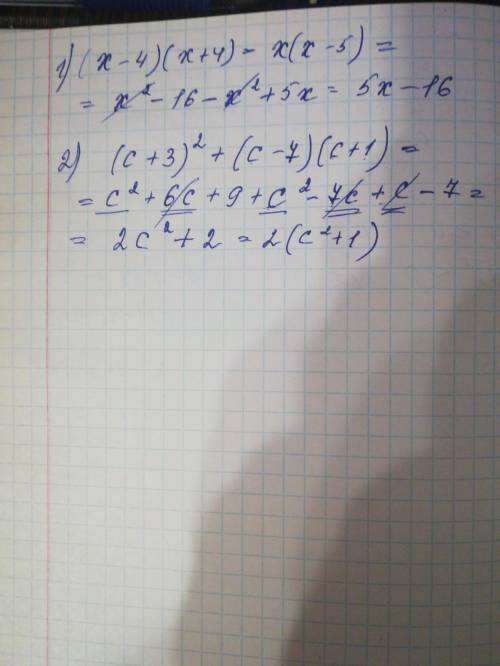 1) (x-4)(x+4) - x(x-5) =
= x² - 16 - x² + 5x = 5x - 16
2) (c+3)² + (c-7)(c+1) =
= c² + 6c + 9 + c² - 7c + c - 7 =
= 2c² + 2 = 2(c²+1)